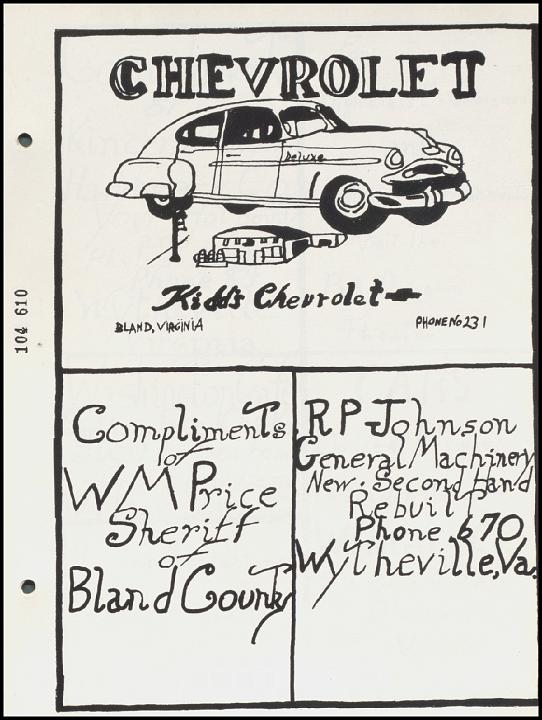 CHEVROLET
Deluxe
Kidd's Chevrolet
BLAND, VIRGINIA
PHONE No 231
104 610
Compliments
of
WM Price
Sheriff
of
Bland County
RP Johnson
General Machinery
New. Second Hand
Rebuilt
Phone 670
Wytheville, Va.